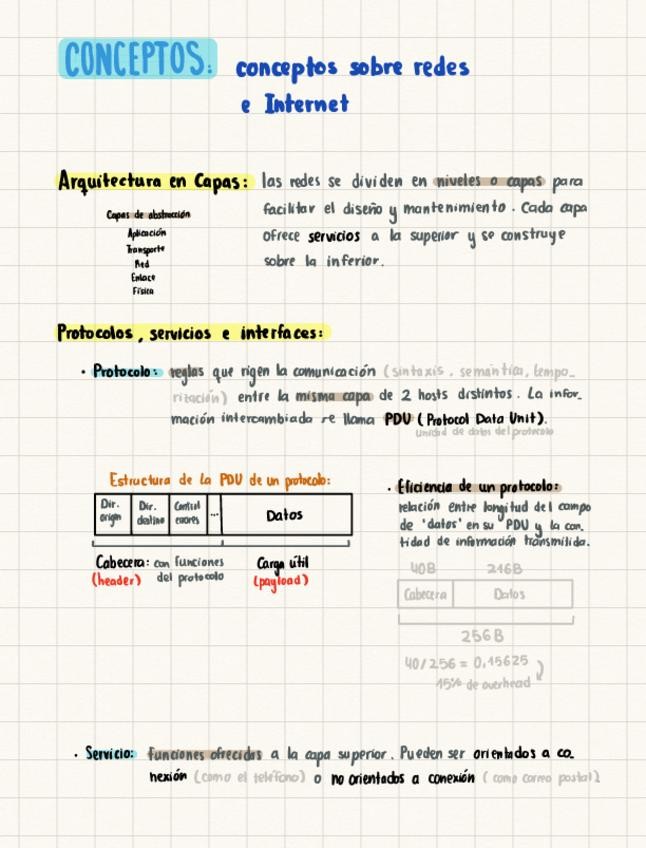 CONCEPTOS: conceptos sobre redes
e Internet
Arquitectura en Capas: las redes se dividen en niveles o capas para
facilitar el diseño y mantenimiento. Cada capa
ofrece servicios a la superior y se construye
sobre la inferior.
Capas de abstracción
Aplicación
Transporte
Red
Enlace
Física
Protocolos, servicios e interfaces:
· Protocolo: reglas que rigen la comunicación (sintaxis, semántica, tempo_
rización) entre la misma capa de 2 hosts distintos. La infor_
mación intercambiada se llama PDU (Protocol Data Unit).
Unidad de datos del protocolo
Estructura de la PDU de un protocolo:
Dir. origin Dir. destino Control errores ... Datos
Cabecera: con funciones
(header) del protocolo
Carga útil
(payload)
· Eficiencia de un protocolo:
relación entre longitud del campo
de 'datos' en su PDU y la can_
tidad de información transmitida.
40B 216B
Cabecera Datos
256B
40/256 = 0,15625
15% de overhead
· Servicio: funciones ofrecidas a la capa superior. Pueden ser orientados a co_
nexión (como el teléfono) o no orientados a conexión (como correo postal)